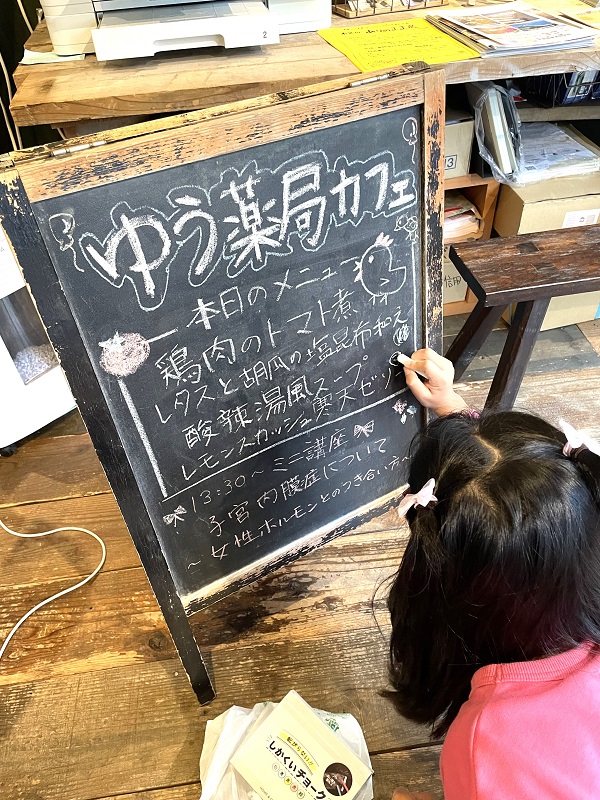 ゆう薬局カフェ
本日のメニュー
鶏肉のトマト煮
レタスと胡瓜の塩昆布和え
酸辣湯風スープ
レモンスカッシュ寒天ゼリー
13:30～ミニ講座
子宮内膜症について
～女性ホルモンとのつき合い方～
転がらない!!
しかくいチョーク
2
3
信用